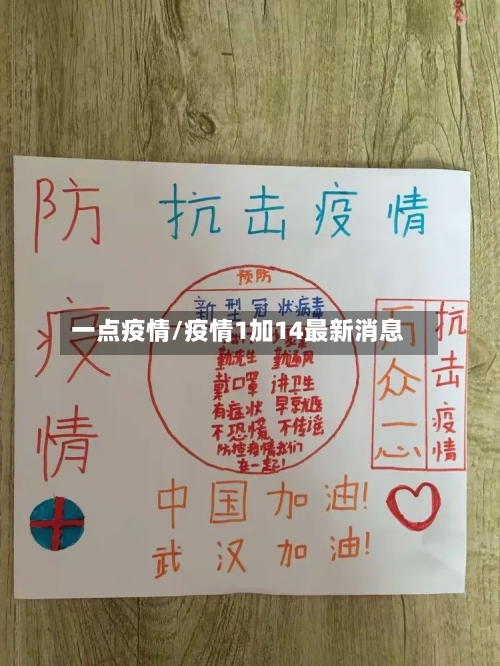 防疫情
抗击疫情
预防
新型冠状病毒
一点疫情/疫情1加14最新消息
勤洗手 勤通风
戴口罩 讲卫生
有症状 早就医
不恐慌 不传谣
防控疫情我们
在一起!
万众一心
抗击疫情
中国加油!
武汉加油!